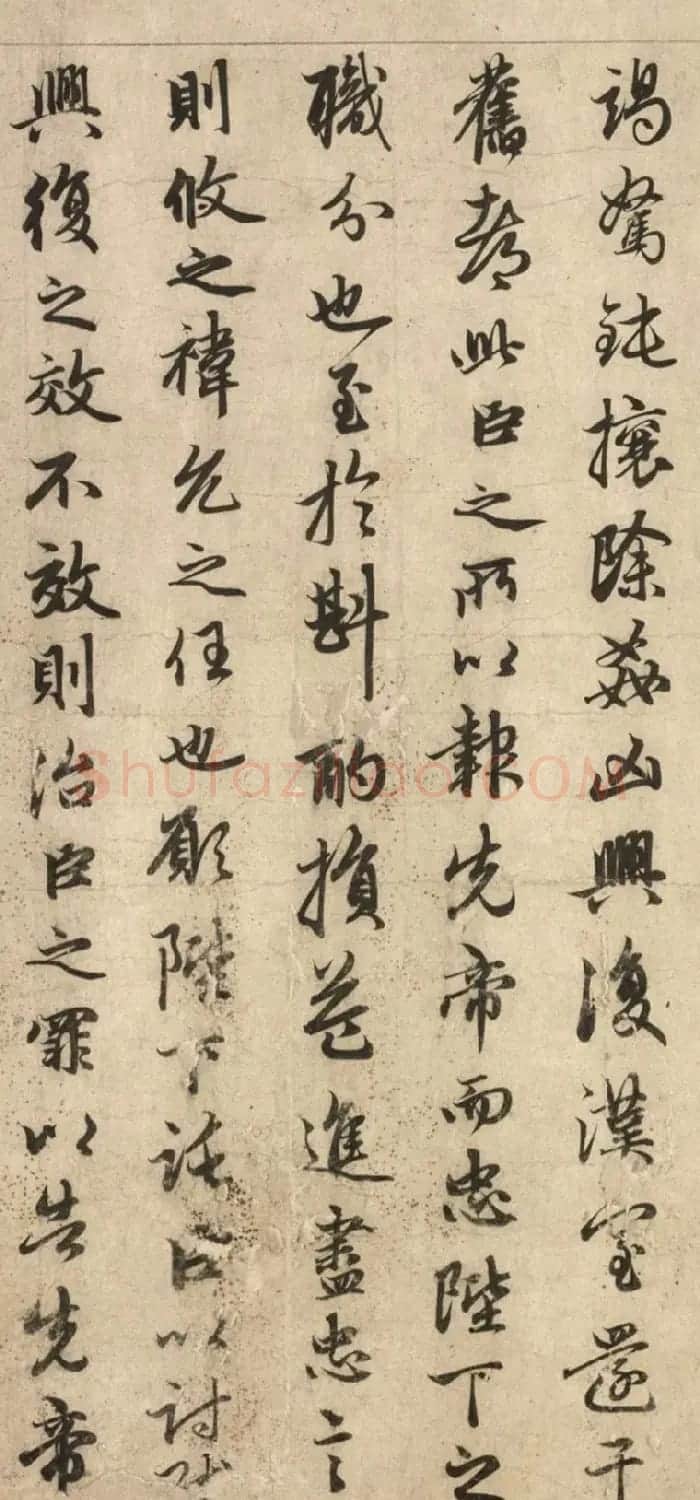 竭駑鈍攘除姦凶興復漢室還于
舊都此臣之所以報先帝而忠陛下之
職分也至於斟酌損益進盡忠言
則攸之禕允之任也願陛下託臣以討賊
興復之效不效則治臣之罪以告先帝
Shufaziliao.COM